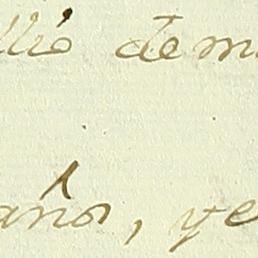 llio dem
años, ye